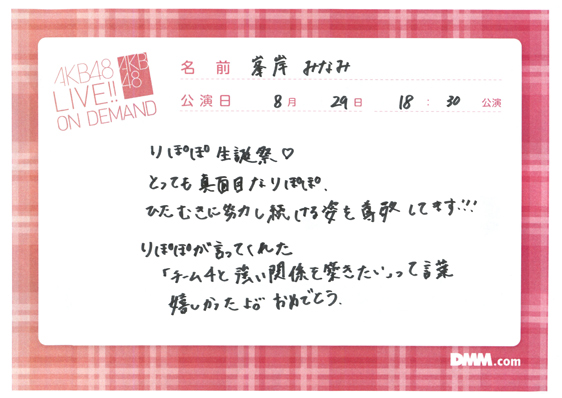 AKB48
LIVE!!
ON DEMAND
AKB
48
名 前 峯岸 みなみ
公演日 8月 29日 18:30 公演
りぽぽ生誕祭♡
とっても真面目なりぽぽ、
ひたむきに努力し続ける姿を尊敬してます!!!
りぽぽが言ってくれた
「チーム4と強い関係を築きたい」って言葉
嬉しかったよ。おめでとう.
DMM.com